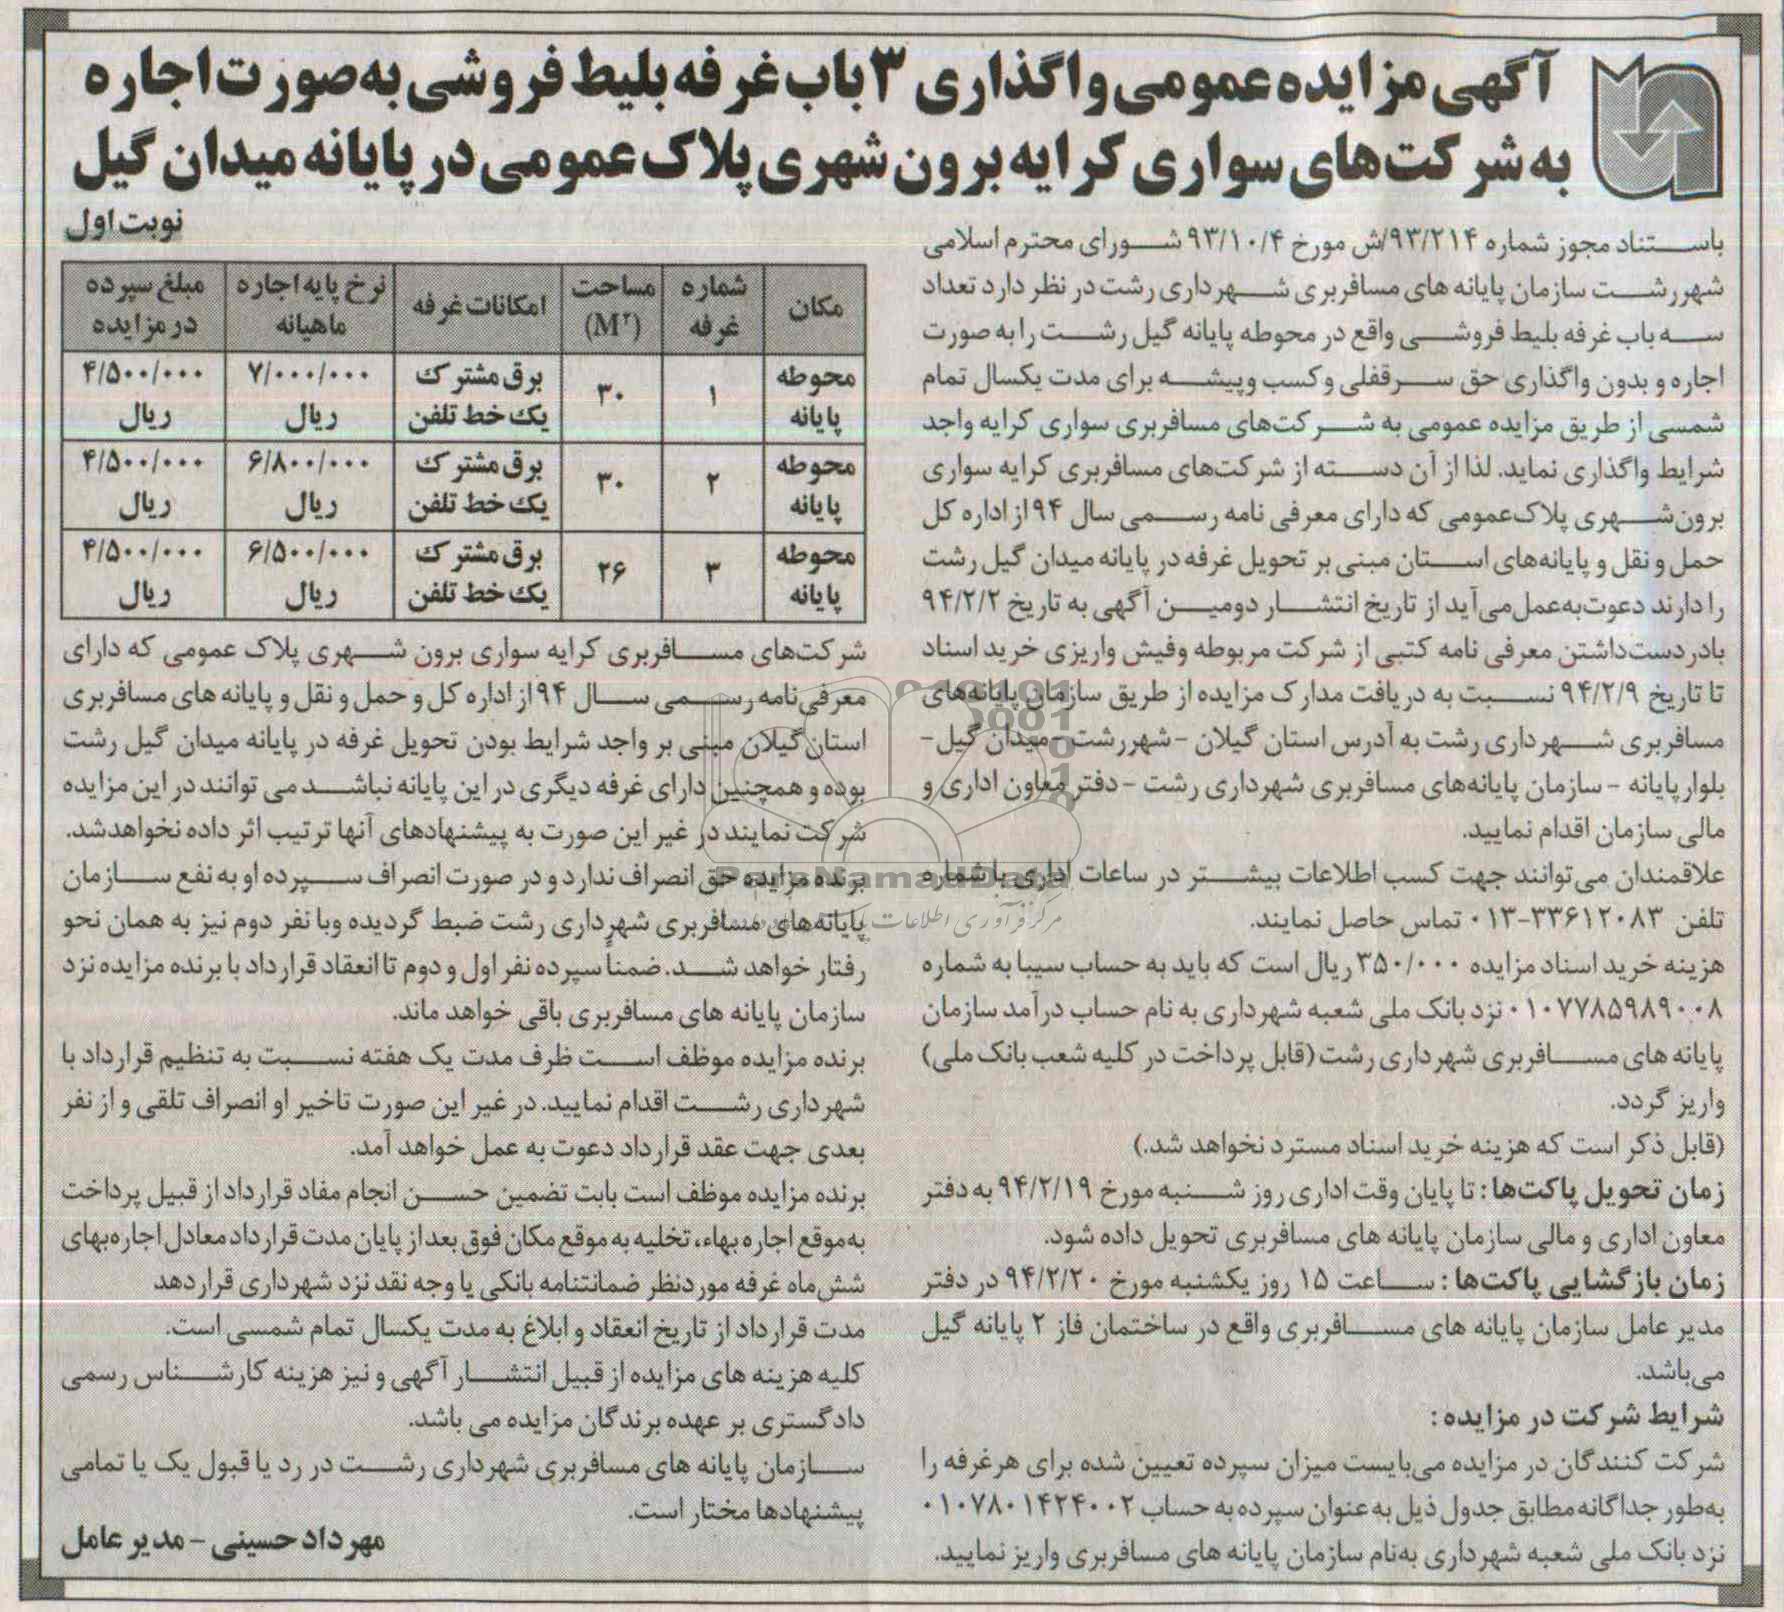 آگهی مزایده عمومی واگذاری ۳ باب غرفه بلیط فروشی به صورت اجاره
به شرکت‌های سواری کرایه برون شهری پلاک عمومی در پایانه میدان گیل
نوبت اول
باستناد مجوز شماره ۹۳/۲۱۴/ش مورخ ۹۳/۱۰/۴ شورای محترم اسلامی
شهر رشت سازمان پایانه های مسافربری شهرداری رشت در نظر دارد تعداد
سه باب غرفه بلیط فروشی واقع در محوطه پایانه گیل رشت را به صورت
اجاره و بدون واگذاری حق سرقفلی و کسب وپیشه برای مدت یکسال تمام
شمسی از طریق مزایده عمومی به شرکت‌های مسافربری سواری کرایه واجد
شرایط واگذاری نماید. لذا از آن دسته از شرکت‌های مسافربری کرایه سواری
برون‌شهری پلاک‌عمومی که دارای معرفی نامه رسمی سال ۹۴ از اداره کل
حمل و نقل و پایانه‌های استان مبنی بر تحویل غرفه در پایانه میدان گیل رشت
را دارند دعوت‌به‌عمل‌می‌آید از تاریخ انتشار دومین آگهی به تاریخ ۹۴/۲/۲
بادردست‌داشتن معرفی نامه کتبی از شرکت مربوطه وفیش واریزی خرید اسناد
تا تاریخ ۹۴/۲/۹ نسبت به دریافت مدارک مزایده از طریق سازمان پایانه‌های
مسافربری شهرداری رشت به آدرس استان گیلان - شهررشت - میدان گیل -
بلوارپایانه - سازمان پایانه‌های مسافربری شهرداری رشت - دفتر معاون اداری و
مالی سازمان اقدام نمایید.
علاقمندان می‌توانند جهت کسب اطلاعات بیشتر در ساعات اداری با شماره
تلفن ۳۳۶۱۲۰۸۳-۰۱۳ تماس حاصل نمایند.
هزینه خرید اسناد مزایده ۳۵۰/۰۰۰ ریال است که باید به حساب سیبا به شماره
۰۱۰۷۷۸۵۹۸۹۰۰۸ نزد بانک ملی شعبه شهرداری به نام حساب درآمد سازمان
پایانه های مسافربری شهرداری رشت (قابل پرداخت در کلیه شعب بانک ملی)
واریز گردد.
(قابل ذکر است که هزینه خرید اسناد مسترد نخواهد شد.)
زمان تحویل پاکت‌ها: تا پایان وقت اداری روز شنبه مورخ ۹۴/۲/۱۹ به دفتر
معاون اداری و مالی سازمان پایانه های مسافربری تحویل داده شود.
زمان بازگشایی پاکت‌ها: ساعت ۱۵ روز یکشنبه مورخ ۹۴/۲/۲۰ در دفتر
مدیر عامل سازمان پایانه های مسافربری واقع در ساختمان فاز ۲ پایانه گیل
می‌باشد.
شرایط شرکت در مزایده:
شرکت کنندگان در مزایده می‌بایست میزان سپرده تعیین شده برای هرغرفه را
به‌طور جداگانه مطابق جدول ذیل به‌عنوان سپرده به حساب ۰۱۰۷۸۰۱۴۲۴۰۰۲
نزد بانک ملی شعبه شهرداری به‌نام سازمان پایانه های مسافربری واریز نمایید.
مکان شماره غرفه مساحت (M۲) امکانات غرفه نرخ پایه اجاره ماهیانه مبلغ سپرده در مزایده
محوطه پایانه ۱ ۳۰ برق مشترک یک خط تلفن ۷/۰۰۰/۰۰۰ ریال ۴/۵۰۰/۰۰۰ ریال
محوطه پایانه ۲ ۳۰ برق مشترک یک خط تلفن ۶/۸۰۰/۰۰۰ ریال ۴/۵۰۰/۰۰۰ ریال
محوطه پایانه ۳ ۲۶ برق مشترک یک خط تلفن ۶/۵۰۰/۰۰۰ ریال ۴/۵۰۰/۰۰۰ ریال
شرکت‌های مسافربری کرایه سواری برون شهری پلاک عمومی که دارای
معرفی‌نامه رسمی سال ۹۴ از اداره کل و حمل و نقل و پایانه های مسافربری
استان گیلان مبنی بر واجد شرایط بودن تحویل غرفه در پایانه میدان گیل رشت
بوده و همچنین دارای غرفه دیگری در این پایانه نباشد می توانند در این مزایده
شرکت نمایند در غیر این صورت به پیشنهادهای آنها ترتیب اثر داده نخواهدشد.
برنده مزایده حق انصراف ندارد و در صورت انصراف سپرده او به نفع سازمان
پایانه‌های مسافربری شهرداری رشت ضبط گردیده وبا نفر دوم نیز به همان نحو
رفتار خواهد شد. ضمناً سپرده نفر اول و دوم تا انعقاد قرارداد با برنده مزایده نزد
سازمان پایانه های مسافربری باقی خواهد ماند.
برنده مزایده موظف است ظرف مدت یک هفته نسبت به تنظیم قرارداد با
شهرداری رشت اقدام نمایید. در غیر این صورت تاخیر او انصراف تلقی و از نفر
بعدی جهت عقد قرارداد دعوت به عمل خواهد آمد.
برنده مزایده موظف است بابت تضمین حسن انجام مفاد قرارداد از قبیل پرداخت
به‌موقع اجاره بهاء، تخلیه به موقع مکان فوق بعد از پایان مدت قرارداد معادل اجاره‌بهای
شش‌ماه غرفه موردنظر ضمانتنامه بانکی یا وجه نقد نزد شهرداری قراردهد
مدت قرارداد از تاریخ انعقاد و ابلاغ به مدت یکسال تمام شمسی است.
کلیه هزینه های مزایده از قبیل انتشار آگهی و نیز هزینه کارشناس رسمی
دادگستری بر عهده برندگان مزایده می باشد.
سازمان پایانه های مسافربری شهرداری رشت در رد یا قبول یک یا تمامی
پیشنهادها مختار است.
مهرداد حسینی - مدیر عامل
ParsNamadData